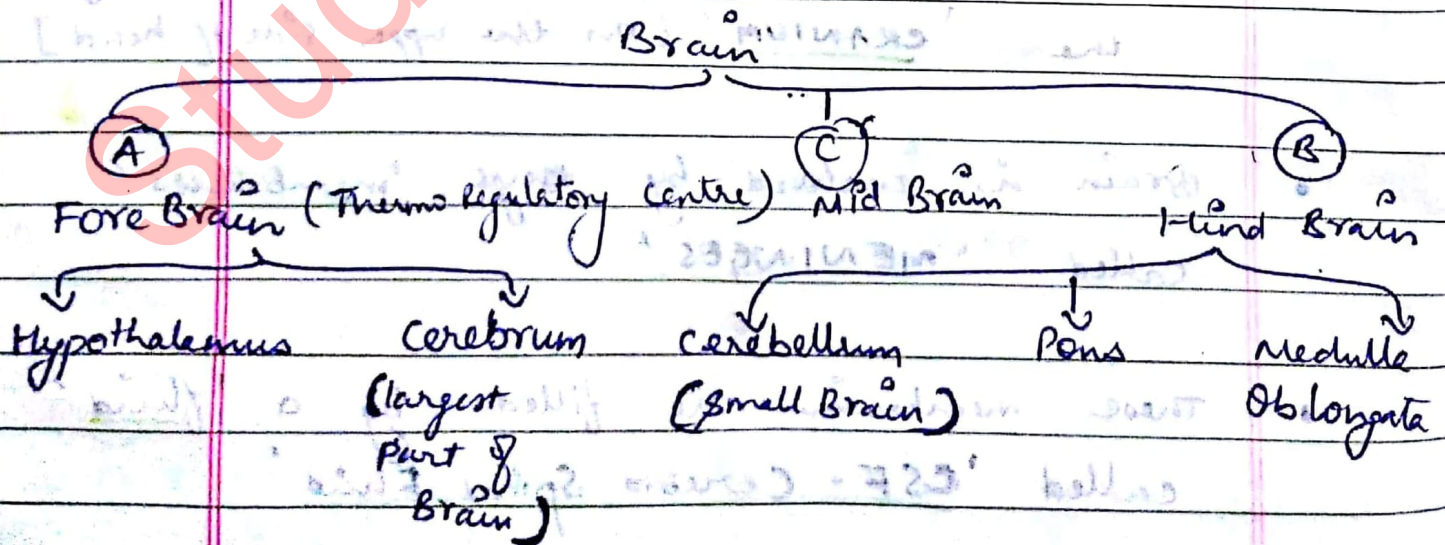 Brain
A
C
B
Fore Brain (Thermo Regulatory Centre)
Mid Brain
Hind Brain
Hypothalemus
Cerebrum
(largest
Part of
Brain)
Cerebellum
(Small Brain)
Pons
Medulle
Oblongata
Stud